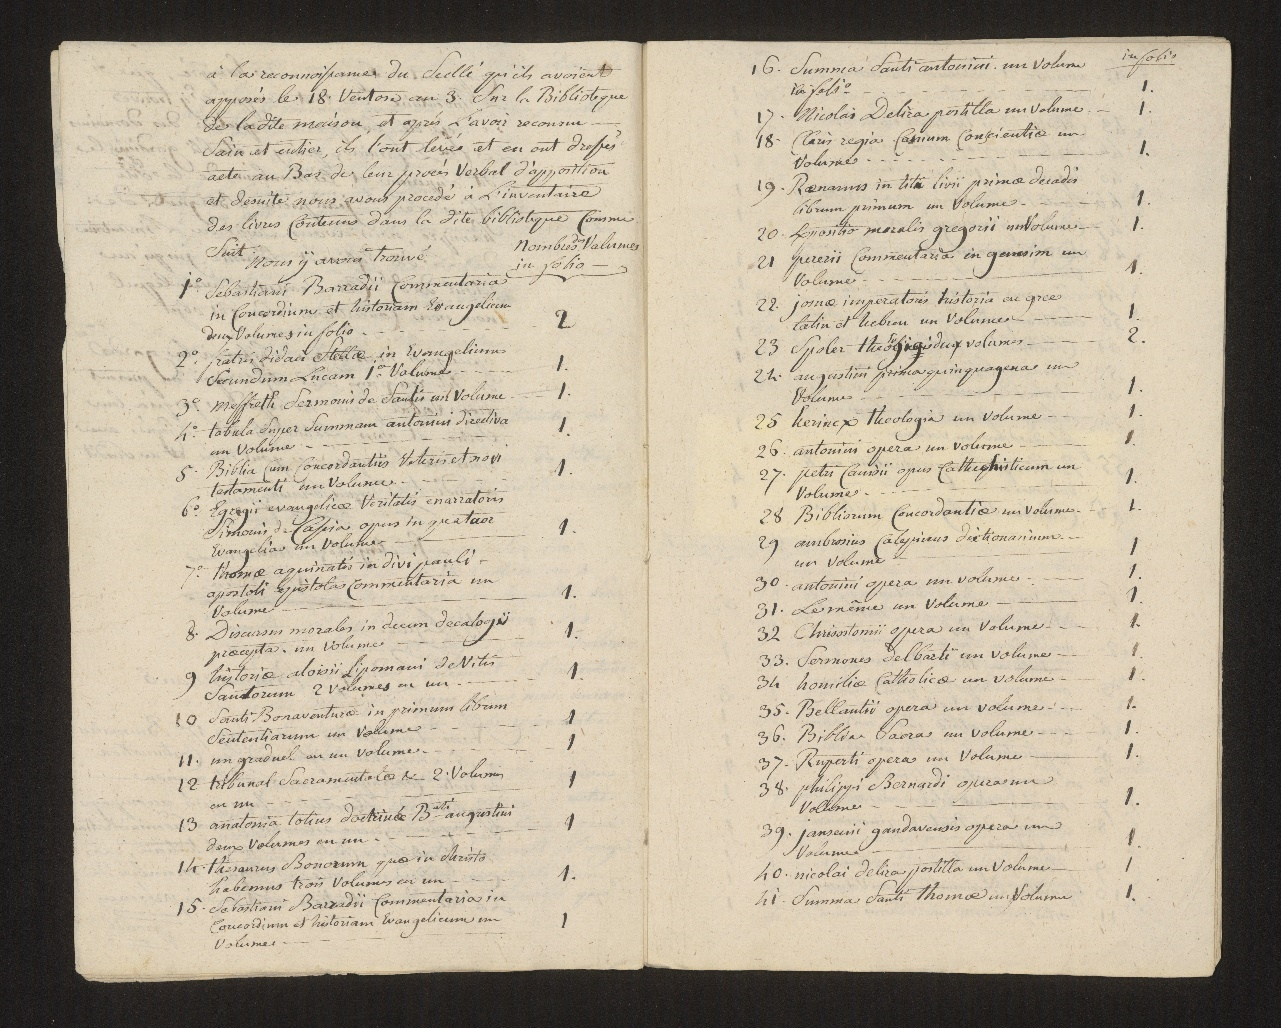 à la reconnoissance du Scellé qu'ils avoient
apposés le 18 Ventose an 3. Sur la Biblioteque
de la dite maison, et après L'avoir reconnu
Sain et entier, ils l'ont levés et en ont dressés
acte au Bas de leur procès Verbal d'apposition
et desuite nous avons procédé à L'inventaire
des livres Contenus dans la dite bibliotéque Comme
Suit.
Nous ÿ avons trouvé
Nombre des Volumes
in folio
1° Sebastiani Barradii Commentaria
in Concordium et historiam Evangelicam
deux Volumes in folio - 2
2° fratris didaci Stellæ in Evangelium
Secundum Lucam 1° Volume 1.
3° meffreth Sermonis de Santis un Volume 1.
4° tabula Super Summam antonini directiva
un Volume 1.
5 Biblia Cum Concordantiis Veteris et novi
testamenti un Volume 1.
6° Egregii evangelicæ Veritatis enarratoris
Simonis de Cassia opus in quatuor
Evangelia un Volume 1.
7° thomæ aquinatis in divi pauli
apostoli epistolas Commentaria un
Volume 1.
8. Discursus morales in decem decalogi
præcepta. un Volume 1.
9 historiæ aloisii Lipomani de Vitis
Santorum 2 Volumes en un 1.
10 Santi Bonaventuræ in primum librum
Sententiarum un Volume 1
11. un graduel en un volume 1
12 tribunal Sacramentale & 2. Volumes
en un 1
13 anatomia totius doctrinæ Bti augustini
deux Volumes en un 1
14. thesaurus Bonorum quæ in christo
habemus trois Volumes en un 1.
15. Sebastiani Barradii Commentaria in
Concordium et historiam Evangelicam un
Volume 1
in folio
16. Summa Santi antonini. un Volume
in folio 1.
17. Nicolai Delira postilla un Volume 1.
18. Claris regia Casuum Conscientiæ un
Volume 1.
19. Rænanus in titi livii primæ decadis
librum primum un Volume 1.
20. Expositio moralis gregorii un Volume 1.
21 pererii Commentaria in genesim un
Volume 1.
22. josuæ imperatoris historia en grec
latin et hebreu un Volume 1.
23 Spoler theologiæ deux volumes 2.
24. augustini prima quinquagena un
Volume 1.
25 herincx theologia un Volume 1.
26. antonini opera un volume 1.
27. petri Canisii opus Cathechisticum un
Volume 1.
28 Bibliorum Concordantiæ un Volume 1.
29 ambrosius Calepinus dictionarium
un Volume 1
30. antonini opera un volume 1.
31. Le même un Volume 1.
32 Chrisostomii opera un Volume 1.
33. Sermones delbarti un Volume 1.
34 homiliæ Catholicæ un Volume 1.
35. Bellantii opera un volume 1.
36. Biblia Sacra un Volume 1.
37. Ruperti opera un Volume 1.
38. philippi Bernardi opera un
Volume 1.
39. jansenii gandavensis opera un
Volume 1.
40. nicolai delira postilla un Volume 1
41. Summa Santi thomæ un Volume 1.